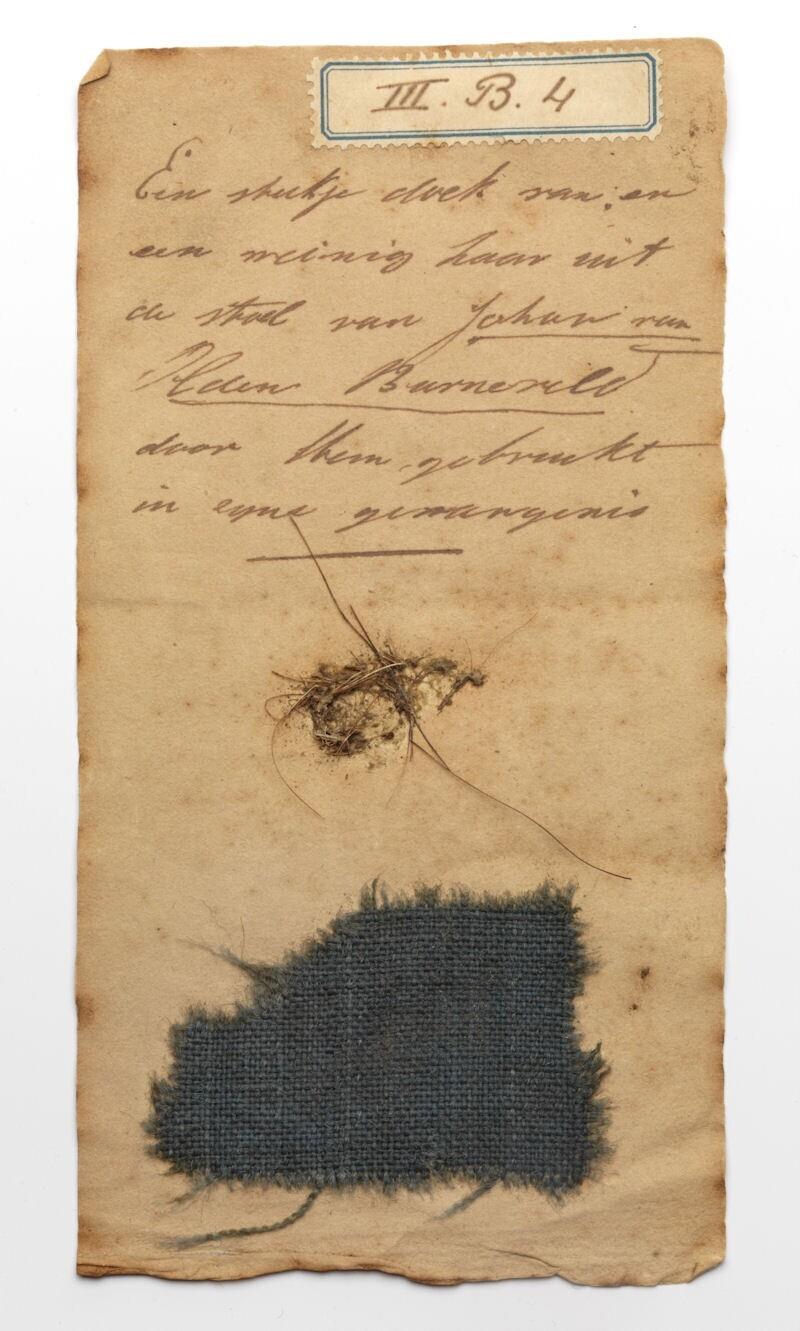 III. B. 4
Een stukje doek van, en
een weinig haar uit
de stoel van Johan van
Olden Barneveld
door Hem gebruikt
in zyne gevangenis